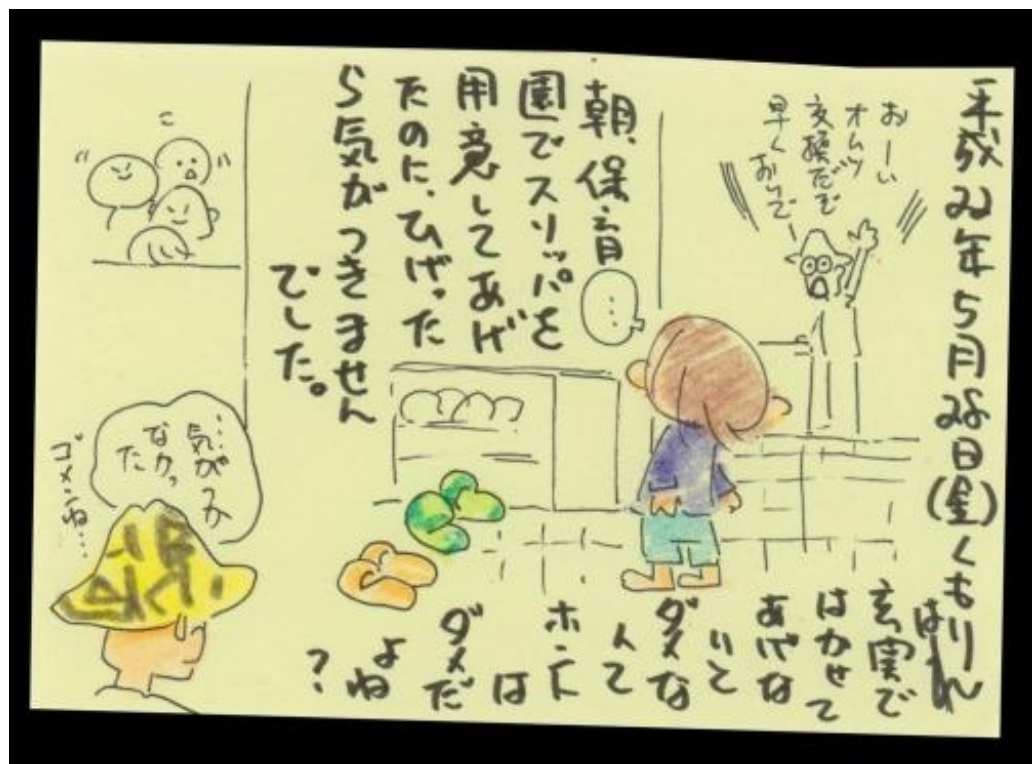 平成22年5月28日(金)くもり
はれ
おーい
オムツ
交換だぞ
早くおいで
朝、保育
園でスリッパを
用意してあげ
たのに、ひげった
ら気がつきません
でした。
…
玄実で
はかせて
あげな
いと
ダメな
んて
ホント
は
ダメだ
よね
?
…気がつか
なかっ
た
ゴメンね…